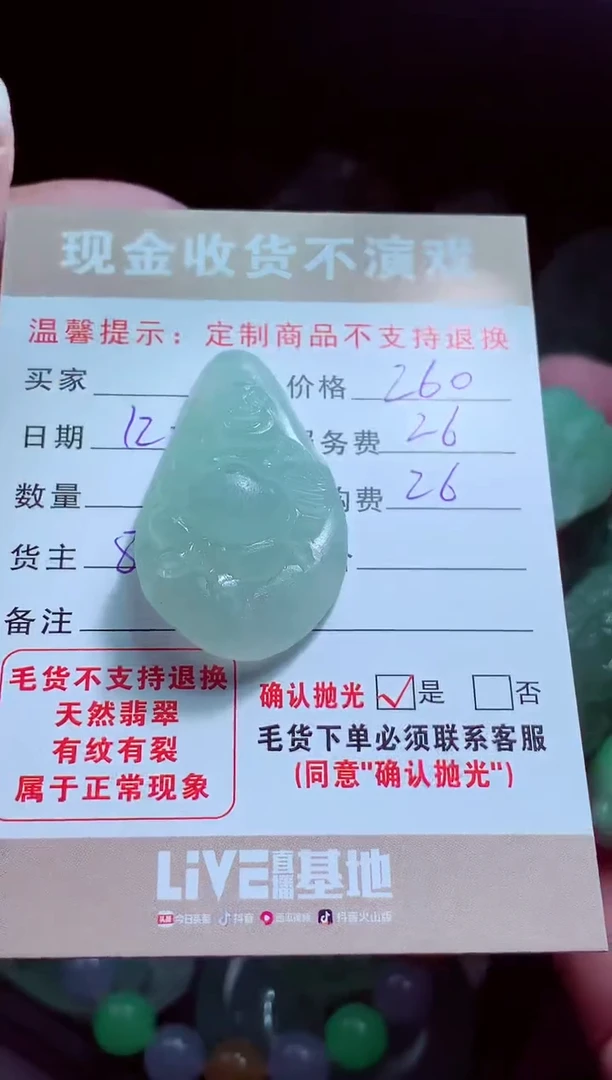 现金收货不演戏
温馨提示：定制商品不支持退换
买家 价格 260
日期 12 务费 26
数量 费 26
货主 8
备注
毛货不支持退换
天然翡翠
有纹有裂
属于正常现象
确认抛光 是 否
毛货下单必须联系客服
(同意"确认抛光")
LiVE直播基地
头条 今日头条 抖音 西瓜视频 抖音火山版